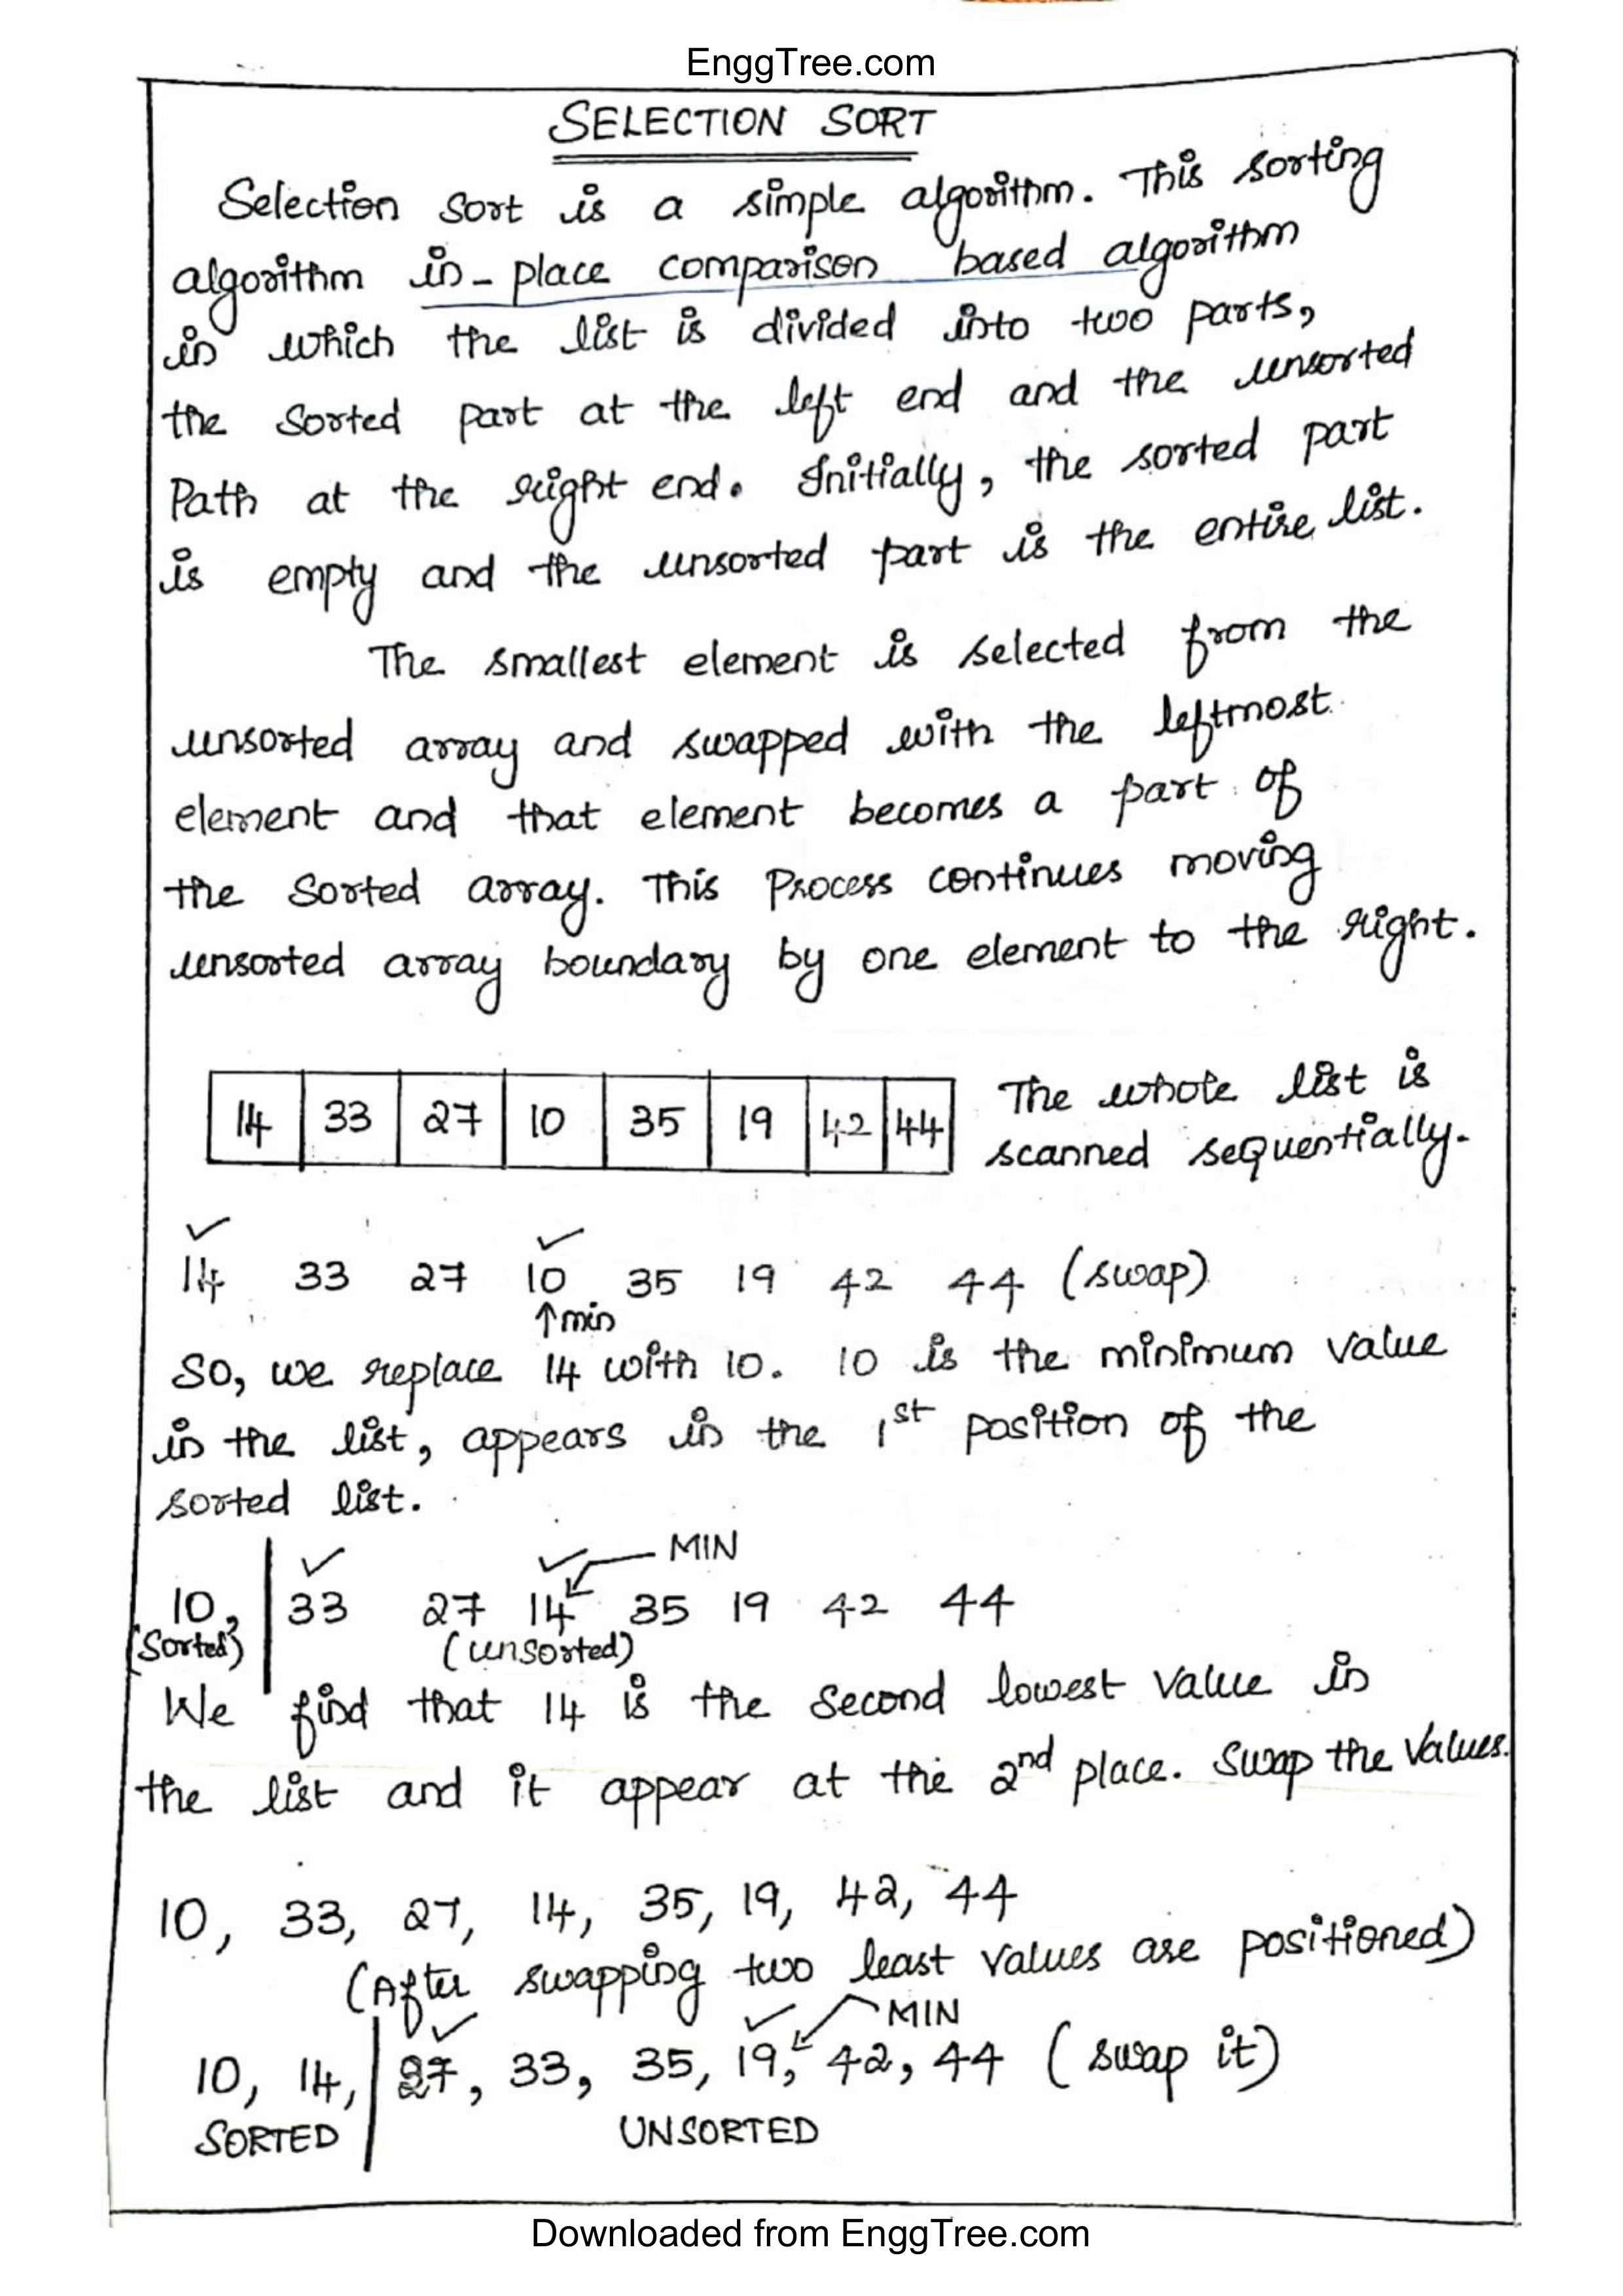 EnggTree.com
SELECTION SORT
Selection Sort is a simple algorithm. This sorting
algorithm in-place comparison based algorithm
in which the list is divided into two parts,
the Sorted part at the left end and the unsorted
Path at the right end. Initially, the sorted part
is empty and the unsorted part is the entire list.
The smallest element is selected from the
unsorted array and swapped with the leftmost
element and that element becomes a part of
the Sorted array. This Process continues moving
unsorted array boundary by one element to the right.
14 33 27 10 35 19 42 44 The whole list is
scanned sequentially.
14 33 27 10 35 19 42 44 (swap)
↑min
So, we replace 14 with 10. 10 is the minimum value
in the list, appears in the 1st position of the
sorted list.
MIN
10, 33 27 14 35 19 42 44
(Sorted) (unsorted)
We find that 14 is the Second lowest value in
the list and it appear at the 2nd place. Swap the values.
10, 33, 27, 14, 35, 19, 42, 44
(After swapping two least values are positioned)
MIN
10, 14, 27, 33, 35, 19, 42, 44 (swap it)
SORTED UNSORTED
Downloaded from EnggTree.com